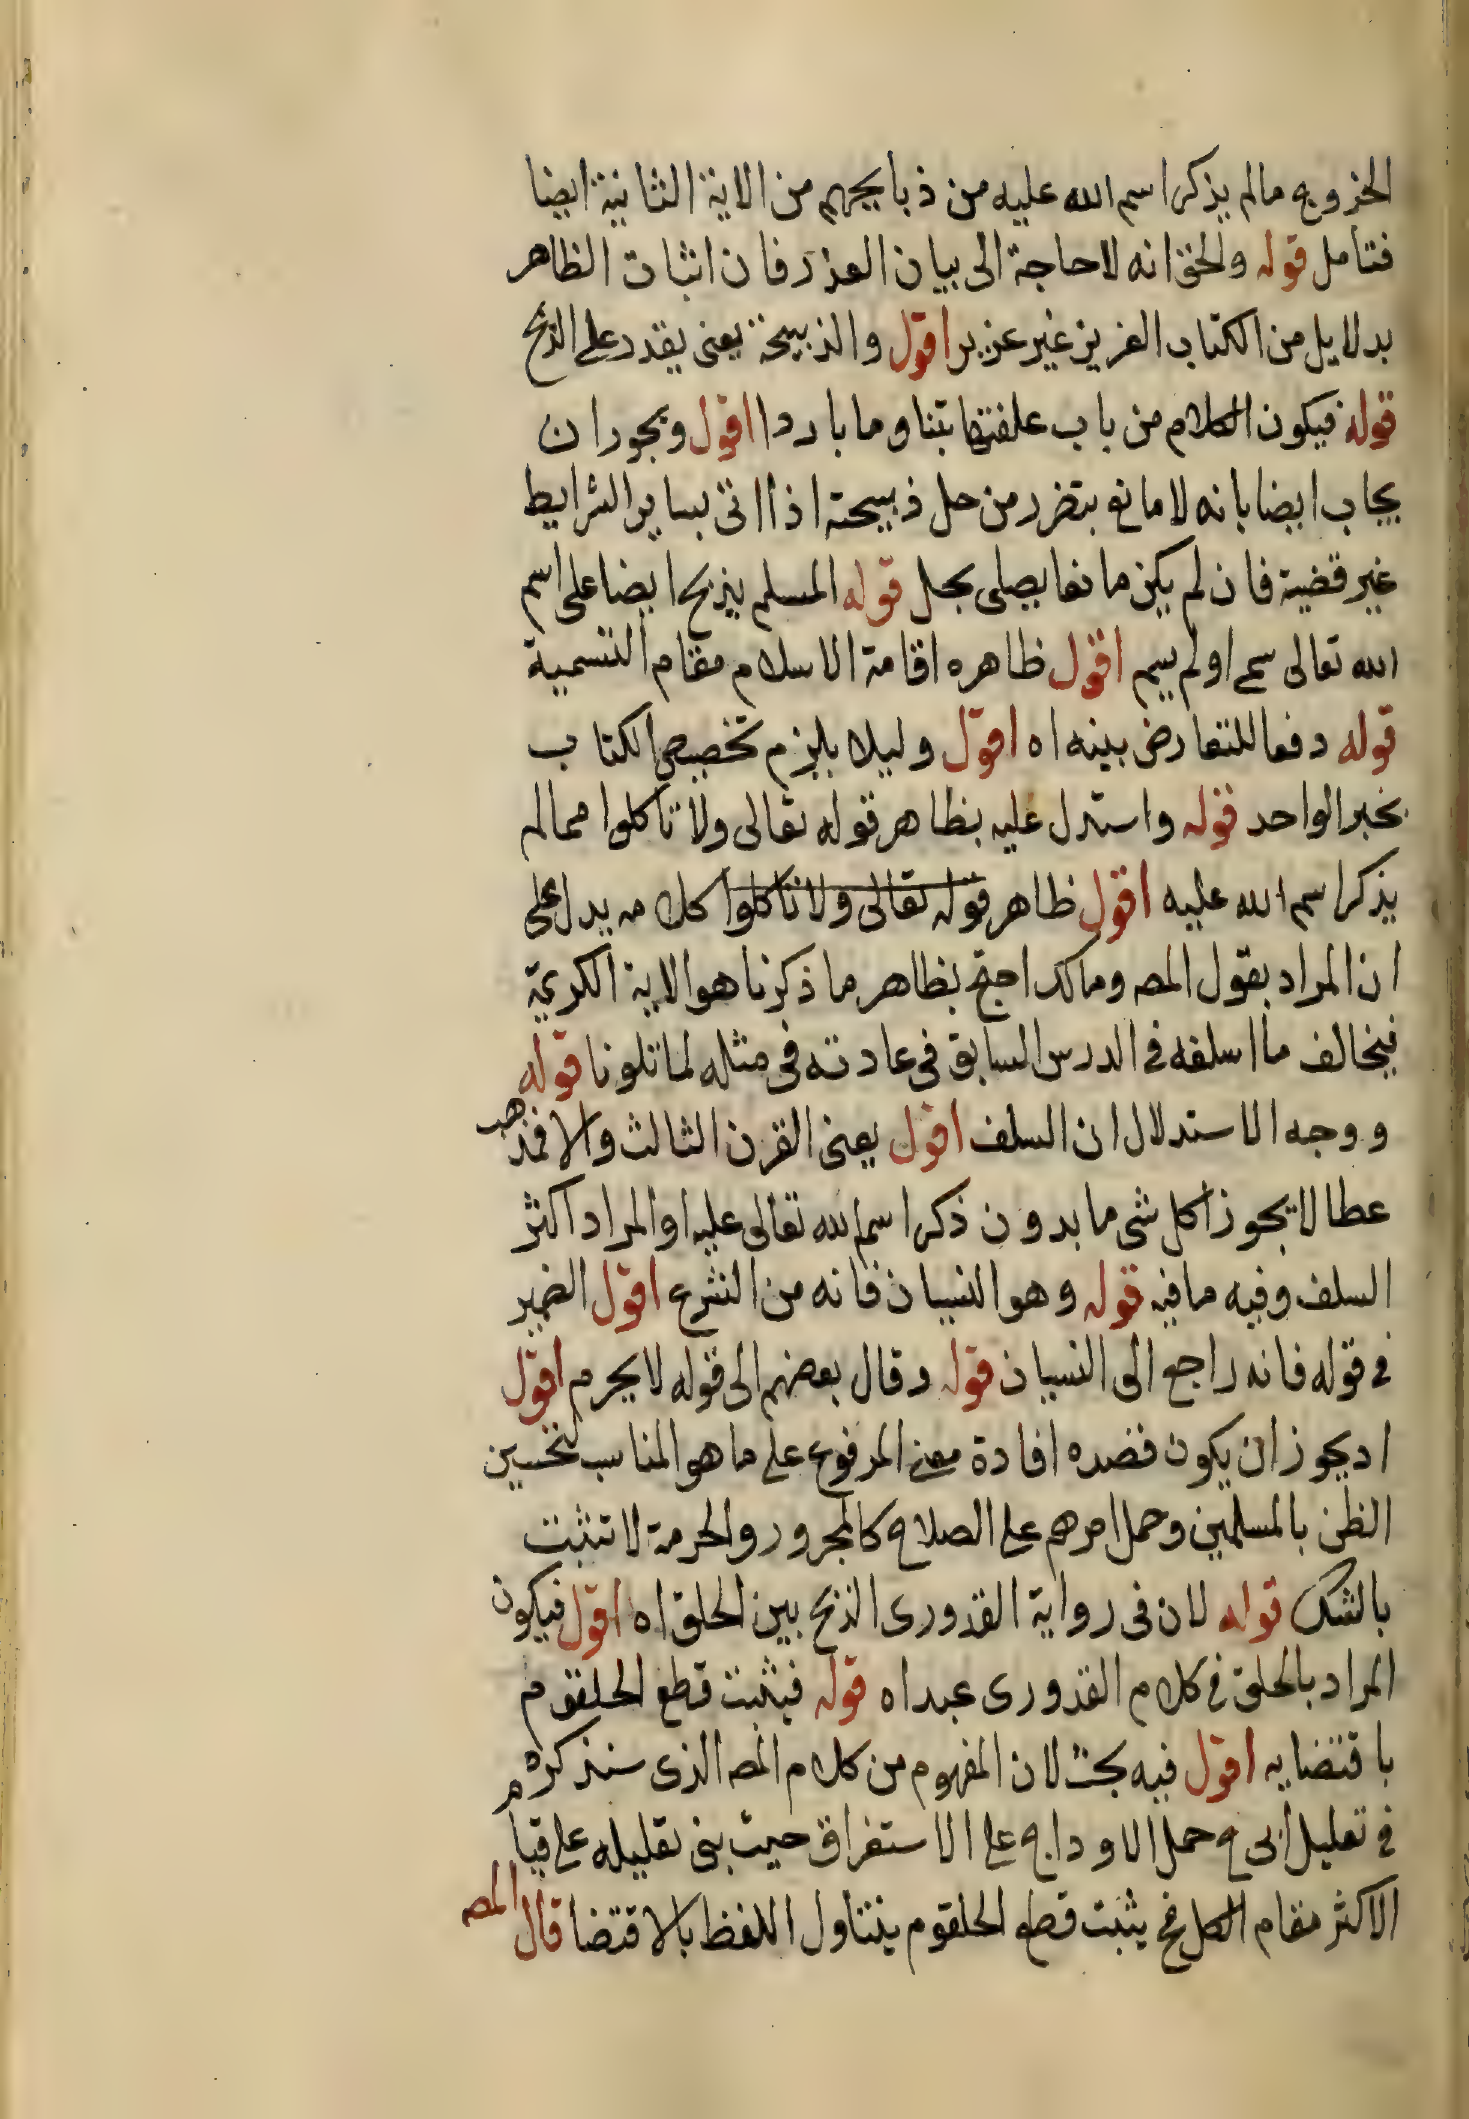 الخروج ما لم يذكر اسم الله عليه من ذبايحهم من الاية الثانية ايضا
فتامل قوله والحق انه لا حاجة الى بيان العذر فان اثبات الظاهر
بدلايل من الكتاب العزيز غير عزيز اقول والذبيحة يعنى يقدر على الذبح
قوله فيكون الكلام من باب علفتها تبنا وما باردا اقول ويجوز ان
يجاب ايضا بانه لا مانع من حل ذبيحته اذا اتى بساير الشرايط
غير قضية فان لم يكن مانعا يصلى بحل قوله المسلم يذبح ايضا على اسم
الله تعالى سمى او لم يسم اقول ظاهره اقامة الاسلام مقام التسمية
قوله دفعا للتعارض بينه اه اقول وليلا يلزم تخصيص الكتاب
بخبر الواحد قوله واستدل عليه بظاهر قوله تعالى ولا تاكلوا مما لم
يذكر اسم الله عليه اقول ظاهر قوله تعالى ولا تاكلوا كلامه يدل على
ان المراد بقول المصه ومالك احتج بظاهر ما ذكرنا هو الاية الكريمة
فيخالف ما اسلفه فى الدرس السابق فى عادته فى مثله لما تلونا قوله
ووجه الاستدلال ان السلف اقول يعنى القرن الثالث والا فمذهب
عطا لا يجوز اكل شى ما بدون ذكر اسم الله تعالى عليه او المراد اكثر
السلف وفيه ما فيه قوله وهو النسيان فانه من الشرع اقول الضمير
فى قوله فانه راجع الى النسيان قوله وقال بعضهم الى قوله لا يحرم اقول
اد يجوز ان يكون قصده افادة معنى المرفوع على ما هو المناسب لتحسين
الظن بالمسلمين وحمل امرهم على الصلاح كالمجرور والحرمة لا تثبت
بالشك قوله لان فى رواية القدورى الذبح بين الحلق اه اقول فيكون
المراد بالحلق فى كلام القدورى عبداه قوله فيثبت قطع الحلقوم
باقتضايه اقول فيه بحث لان المفهوم من كلام المصه الذى سنذكره
فى تعليل ابى ح حمل الاوداج على الاستغراق حيث بنى تعليله على قيام
الاكثر مقام الكل فح يثبت قطع الحلقوم بتناول اللفظ بالاقتضا قال المصه